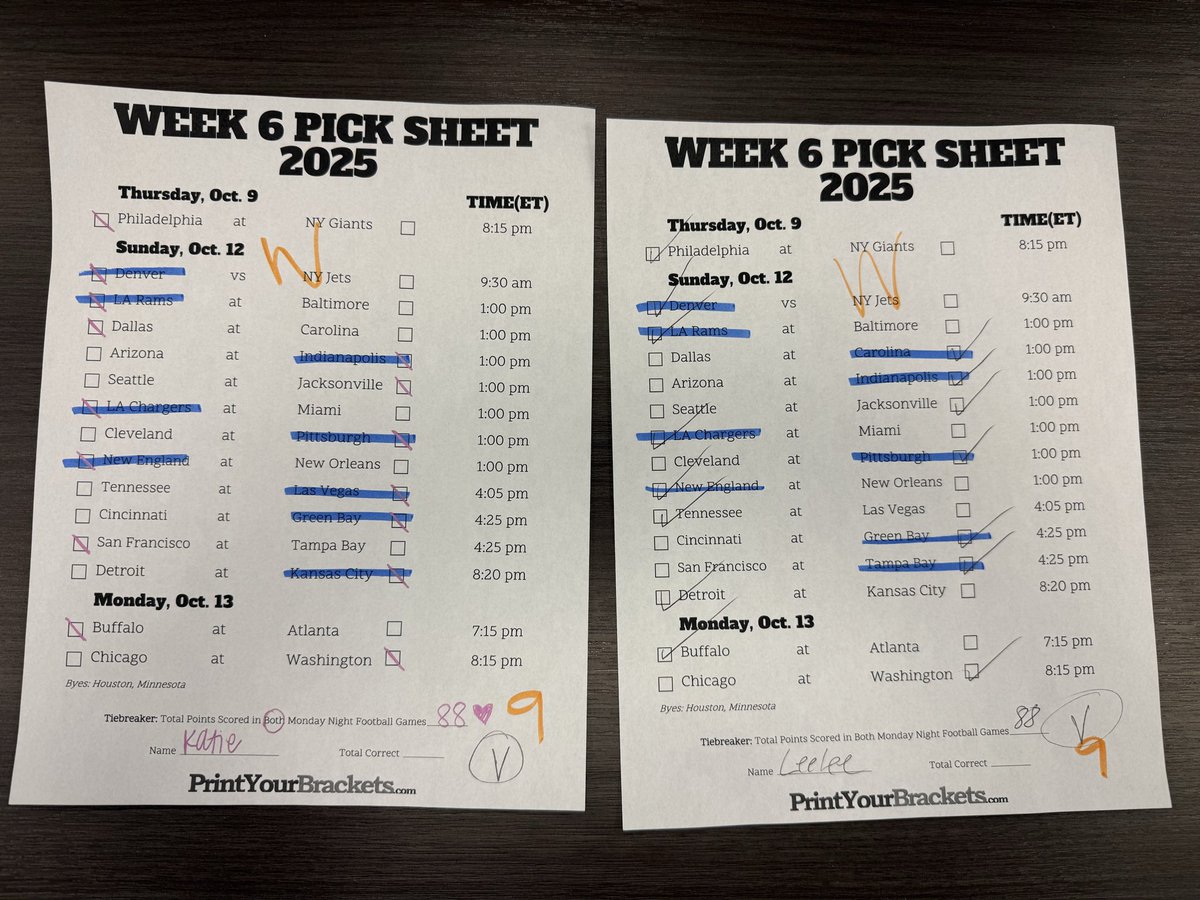 WEEK 6 PICK SHEET
2025
Thursday, Oct. 9 TIME(ET)
Philadelphia at NY Giants 8:15 pm
Sunday, Oct. 12 W
Denver vs NY Jets 9:30 am
LA Rams at Baltimore 1:00 pm
Dallas at Carolina 1:00 pm
Arizona at Indianapolis 1:00 pm
Seattle at Jacksonville 1:00 pm
LA Chargers at Miami 1:00 pm
Cleveland at Pittsburgh 1:00 pm
New England at New Orleans 1:00 pm
Tennessee at Las Vegas 4:05 pm
Cincinnati at Green Bay 4:25 pm
San Francisco at Tampa Bay 4:25 pm
Detroit at Kansas City 8:20 pm
Monday, Oct. 13
Buffalo at Atlanta 7:15 pm
Chicago at Washington 8:15 pm
Byes: Houston, Minnesota
Tiebreaker: Total Points Scored in Both Monday Night Football Games 88 9
Name Katie Total Correct V
PrintYourBrackets.com
WEEK 6 PICK SHEET
2025
Thursday, Oct. 9 TIME(ET)
Philadelphia at NY Giants 8:15 pm
Sunday, Oct. 12 W
Denver vs NY Jets 9:30 am
LA Rams at Baltimore 1:00 pm
Dallas at Carolina 1:00 pm
Arizona at Indianapolis 1:00 pm
Seattle at Jacksonville 1:00 pm
LA Chargers at Miami 1:00 pm
Cleveland at Pittsburgh 1:00 pm
New England at New Orleans 1:00 pm
Tennessee at Las Vegas 4:05 pm
Cincinnati at Green Bay 4:25 pm
San Francisco at Tampa Bay 4:25 pm
Detroit at Kansas City 8:20 pm
Monday, Oct. 13
Buffalo at Atlanta 7:15 pm
Chicago at Washington 8:15 pm
Byes: Houston, Minnesota
Tiebreaker: Total Points Scored in Both Monday Night Football Games 88 V
Name LeeLee Total Correct 9
PrintYourBrackets.com